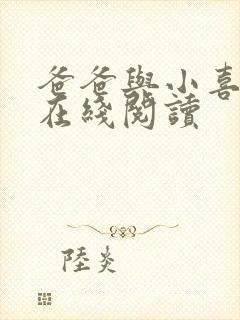 爸爸與小喜
在綫閱讀
陸炎